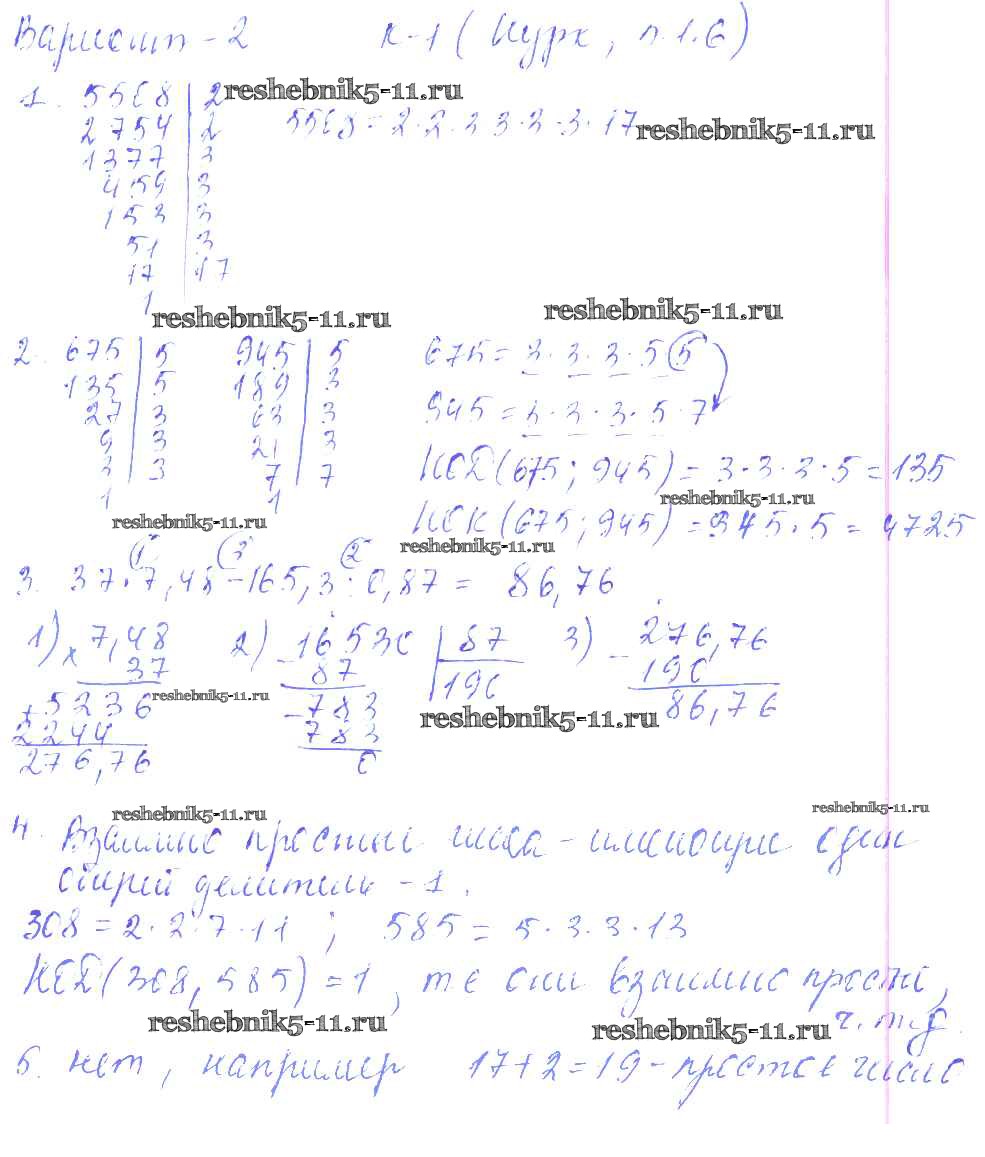 Вариант - 2 К-1 (Нурк, п.1.6)
1. 5508 | 2 reshebnik5-11.ru
2754 | 2 5508 = 2·2·3·3·3·3·17 reshebnik5-11.ru
1377 | 3
459 | 3
153 | 3
51 | 3
17 | 17
1
reshebnik5-11.ru reshebnik5-11.ru
2. 675 | 5 945 | 5 675 = 3·3·3·5·5
135 | 5 189 | 3
27 | 3 63 | 3 945 = 3·3·3·5·7
9 | 3 21 | 3
3 | 3 7 | 7 НОД (675; 945) = 3·3·3·5 = 135
1 1 reshebnik5-11.ru
reshebnik5-11.ru НОК (675; 945) = 945·5 = 4725
reshebnik5-11.ru
1 3 2
3. 37·7,48 - 165,3 : 0,87 = 86,76
1) × 7,48 2) 16530 | 87 3) - 276,76
37 - 87 | 190 190
reshebnik5-11.ru
+ 5236 - 783 86,76
reshebnik5-11.ru
2244 783
276,76 0
reshebnik5-11.ru reshebnik5-11.ru
4. Взаимно простые числа - имеющие один
общий делитель - 1.
308 = 2·2·7·11 ; 585 = 5·3·3·13
НОД (308, 585) = 1, т е они взаимно просты,
reshebnik5-11.ru reshebnik5-11.ru ч.т.д.
5. нет, например 17+2=19 - простое число